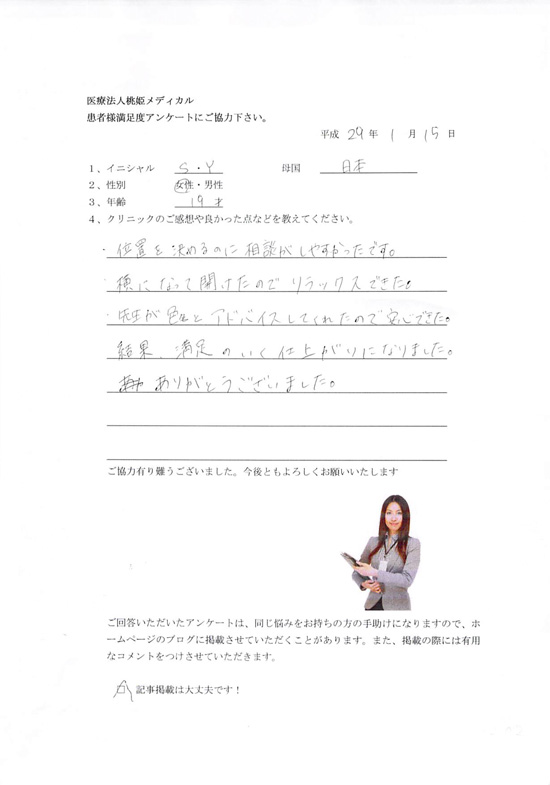 医療法人桃姫メディカル
患者様満足度アンケートにご協力下さい。
平成 29 年 1 月 15 日
1、イニシャル S・Y 母国 日本
2、性別 女性・男性
3、年齢 19才
4、クリニックのご感想や良かった点などを教えてください。
・位置を決めるのに相談がしやすかったです。
・横になって開けたのでリラックスできた。
・先生が色々とアドバイスしてくれたので安心できた。
結果、満足のいく仕上がりになりました。
ありがとうございました。
ご協力有り難うございました。今後ともよろしくお願いいたします
ご回答いただいたアンケートは、同じ悩みをお持ちの方の手助けになりますので、ホ
ームページのブログに掲載させていただくことがあります。また、掲載の際には有用
なコメントをつけさせていただきます。
記事掲載は大丈夫です！